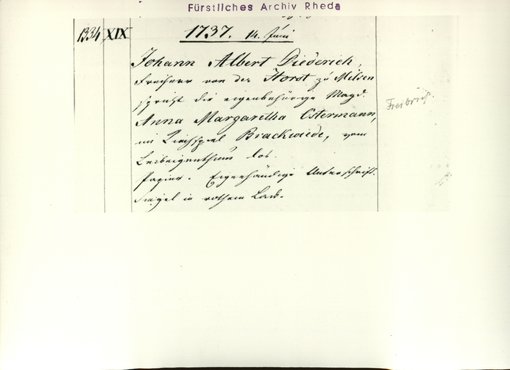 Fürstliches Archiv Rheda
1334 XIX 1737. 14. Juni
Johann Albert Diederich,
Freiherr von der Horst zu Milsen
spricht die eigenbehörige Magd
Anna Margaretha Ostermann,
im Kirchspiel Brackwede, vom
Leibeigenthum los.
Papier. Eigenhändige Unterschrift.
Siegel in rothem Lack.
Freibrief.